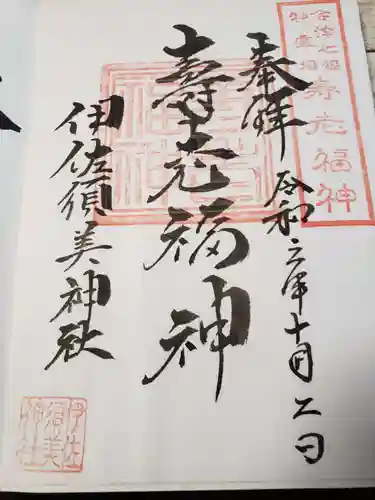 奉拝
令和六年十月二日
壽老福神
伊佐須美神社
会津七福神霊場
寿老福神
伊佐須美神社